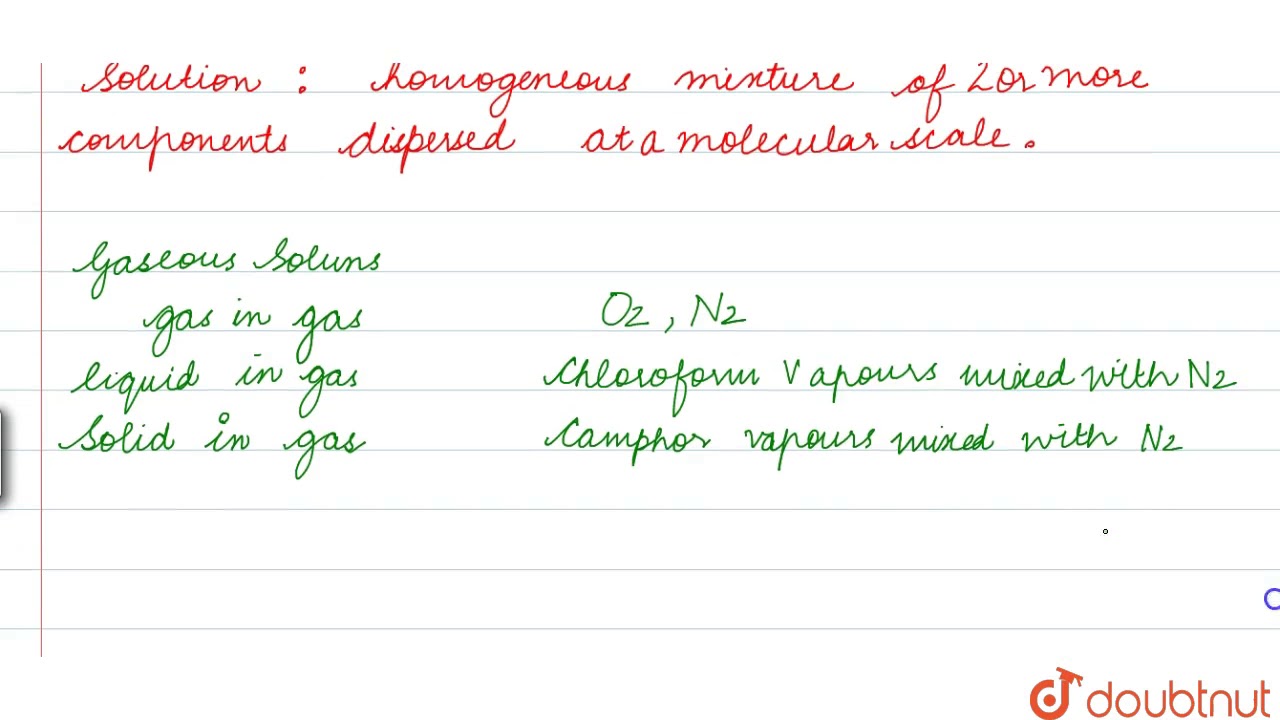 Solution : homogeneous mixture of 2 or more
components dispersed at a molecular scale.
Gaseous Soluns
gas in gas O2 , N2
liquid in gas Chloroform Vapours mixed with N2
Solid in gas Camphor vapours mixed with N2
doubtnut